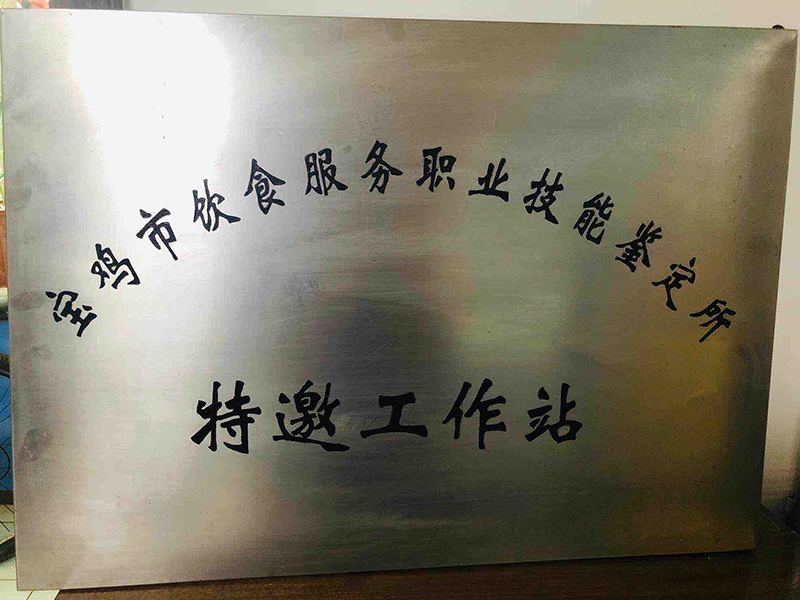 宝鸡市饮食服务职业技能鉴定所
特邀工作站